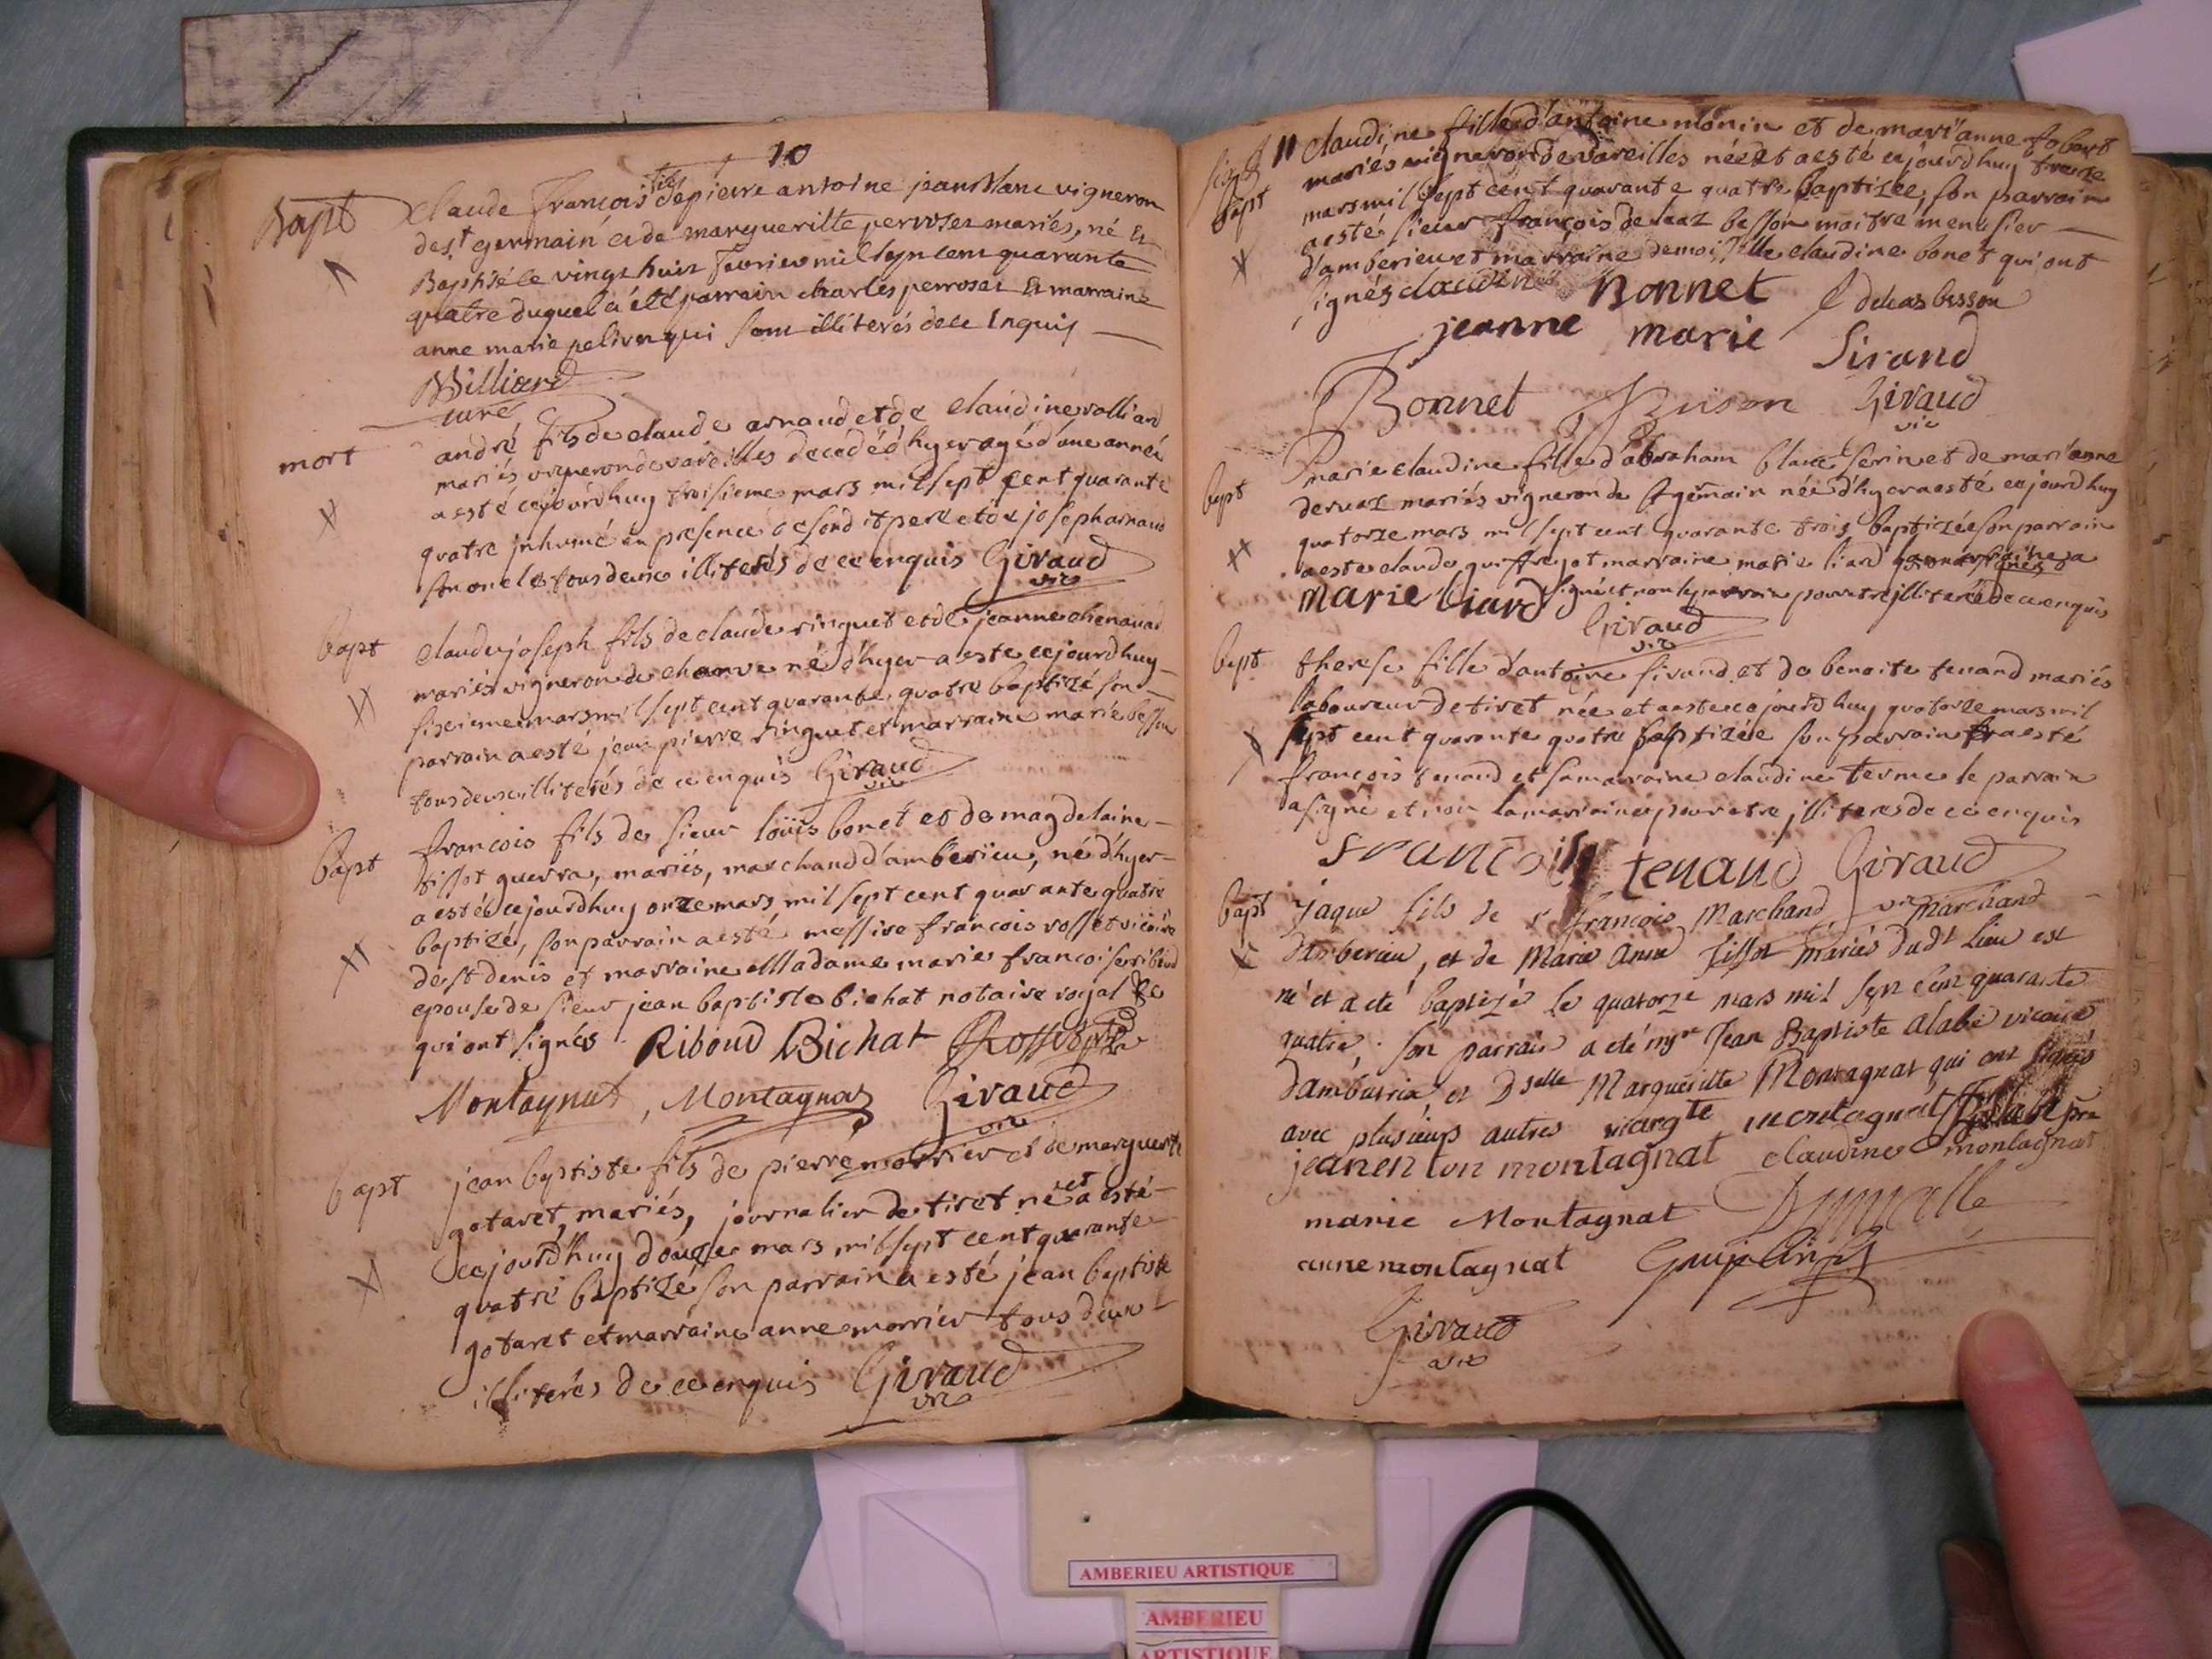 10
Bapt
claude francois fils de pierre antoine jean blanc vigneron
de st germain et de margueritte perroset mariés, né et
Baptisé le vingt huit fevrier mil sept cent quarante
quatre duquel a été parrain charles perroset et marraine
anne marie qui sont illiterés de ce enquis
Billiard
curé
mort
andré fils de claude arnaud et de claudine volliard
mariés vigneron de vareilles decedé d'hyer agé d'une année
a esté cejourdhuy troisieme mars mil sept cent quarante
quatre inhumé en presence de sondit pere et de joseph arnaud
son oncle tous deux illiterés de ce enquis Giraud
vic
bapt
claude joseph fils de claude ringuet et de jeanne chenavas
mariés vigneron de né d'hyer a esté cejourdhuy
sixieme mars mil sept cent quarante quatre baptizé son
parrain a esté jean pierre ringuet et marraine marie besson
tous deux illiterés de ce enquis Giraud
vic
bapt
francois fils de sieur loüis bonet et de magdelaine
tissot guerra, mariés, marchand d'amberieu, né d'hyer
a esté cejourdhuy onze mars mil sept cent quarante quatre
baptizé, son parrain a esté messire francois rosset vicaire
de st denis et marraine Madame marie francoise riboud
epouse de sieur jean baptiste bichat notaire royal
qui ont signés Riboud Bichat Rosset
Montagnat, Montagnat Giraud
vic
bapt
jean baptiste fils de pierre morrier et de marguerite
gotaret, mariés, journalier de tiret né et a esté
cejourdhuy douze mars mil sept cent quarante
quatre baptizé son parrain a esté jean baptiste
gotaret et marraine anne morrier tous deux
illiterés de ce enquis Giraud
vic
11
bapt
claudine fille d'antoine monin et de mari anne
mariés vigneron de vareilles née et a esté cejourdhuy treize
mars mil sept cent quarante quatre baptizée, son parrain
a esté sieur françois delaaz besson maitre menusier
d'amberieu et marraine demoiselle claudine bonet qui ont
signés claudine Bonnet f delaas besson
jeanne marie Sirand
Bonnet Buison Giraud
vic
bapt
marie claudine fille d'abraham blanc serin et de mari anne
dervaz mariés vigneron de st germain née d'hyer a esté cejourdhuy
quatorze mars mil sept cent quarante trois baptizée son parrain
a esté claude guiffrey et marraine marie liard a
signé et non le parrain pour etre illiteré de ce enquis
marie liard Giraud
vic
bapt
therese fille d'antoine sirand et de benoite tenand mariés
laboureur de tiret née et a esté cejourdhuy quatorze mars mil
sept cent quarante quatre baptizée son parrain a esté
francois tenand et sa marraine claudine terme le parrain
a signé et non la marraine pour etre illiterée de ce enquis
francois tenand Giraud
vic
bapt
jaque fils de sr francois Marchand marchand
d'amberieu, et de Marie Anne Tissot mariés dudt Lieu est
né et a eté baptizé le quatorze mars mil sept cent quarante
quatre, son parrain a eté msre Jean Baptiste alabe vicaire
d'ambutrix et Dselle Margueritte Montagnat qui ont signés
avec plusieurs autres margte montagnat alabe pre
jeaneton montagnat claudine montagnat
marie Montagnat
anne montagnat
Giraud
vic
AMBERIEU ARTISTIQUE
AMBERIEU
ARTISTIQUE